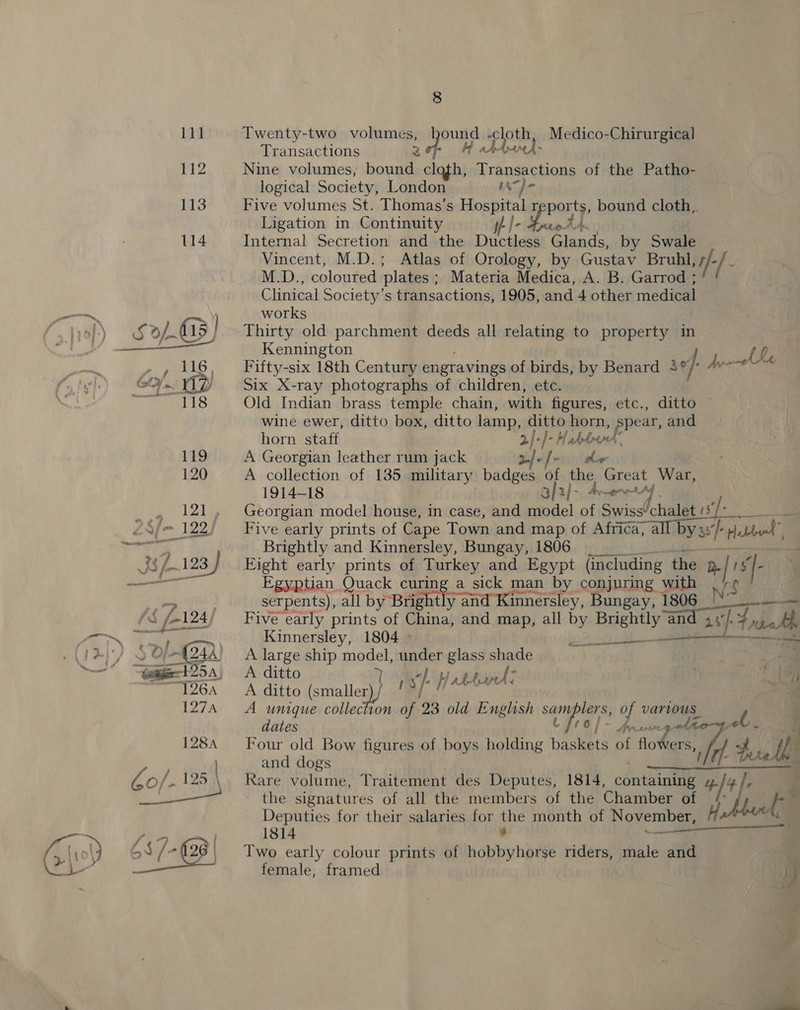 8
111 Twenty-two volumes, bound cloth, Medico-Chirurgical
Transactions
112 Nine volumes, bound cloth, Transactions of the Patho-
logical Society, London
113 Five volumes St. Thomas's Hospital reports, bound cloth,
Ligation in Continuity
114 Internal Secretion and the Ductless Glands, by Swale
Vincent, M.D.; Atlas of Orology, by Gustav Bruhl,
M.D., coloured plates; Materia Medica, A. B. Garrod;
Clinical Society's transactions, 1905, and 4 other medical
works
50/- 115 Thirty old parchment deeds all relating to property in
Kennington
116 Fifty-six 18th Century engravings of birds, by Benard 30/-
117 Six X-ray photographs of children, etc.
118 Old Indian brass temple chain, with figures, etc., ditto
wine ewer, ditto box, ditto lamp, ditto horn, spear, and
horn staff 2/-/- Habberd
119 A Georgian leather rum jack 2/-/- do
120 A collection of 135 military badges of the Great War,
1914–18 3/3/-
121 Georgian model house, in case, and model of Swiss chalet 15/-
25/- 122 Five early prints of Cape Town and map of Africa, all by 35/-
Brightly and Kinnersley, Bungay, 1806
35/- 123 Eight early prints of Turkey and Egypt (including the 2/15/-
Egyptian Quack curing a sick man by conjuring with
serpents), all by Brightly and Kinnersley, Bungay, 1806
15/- 124 Five early prints of China, and map, all by Brightly and 25/-
Kinnersley, 1804
50/- 124A A large ship model, under glass shade
125A A ditto
126A A ditto (smaller) 15/-
127A A unique collection of 23 old English samplers, of various
dates
128A Four old Bow figures of boys holding baskets of flowers,
and dogs
60/- 125 Rare volume, Traitement des Deputes, 1814, containing 4/4/-
the signatures of all the members of the Chamber of
Deputies for their salaries for the month of November,
1814
65/- 126 Two early colour prints of hobbyhorse riders, male and
female, framed